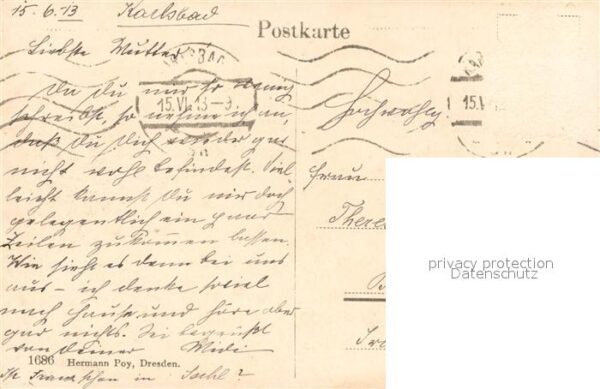 15.6.13 Karlsbad
Postkarte
Liebste Mutter
Da du mir so wenig
schreibst, so nehme ich an,
daß Du Dich wieder gar
nicht wohl befindest. Viel-
leicht kannst Du mir doch
gelegentlich ein paar
Zeilen zukommen lassen.
Wie sieht es denn bei uns
aus – ich denke soviel
nach Hause und höre aber
gar nichts. Sei begrüßt
von Deiner
15.VI.13-9
15.V
Frau
There
privacy protection
Datenschutz
1686 Hermann Poy, Dresden.
Ist in Ischl?